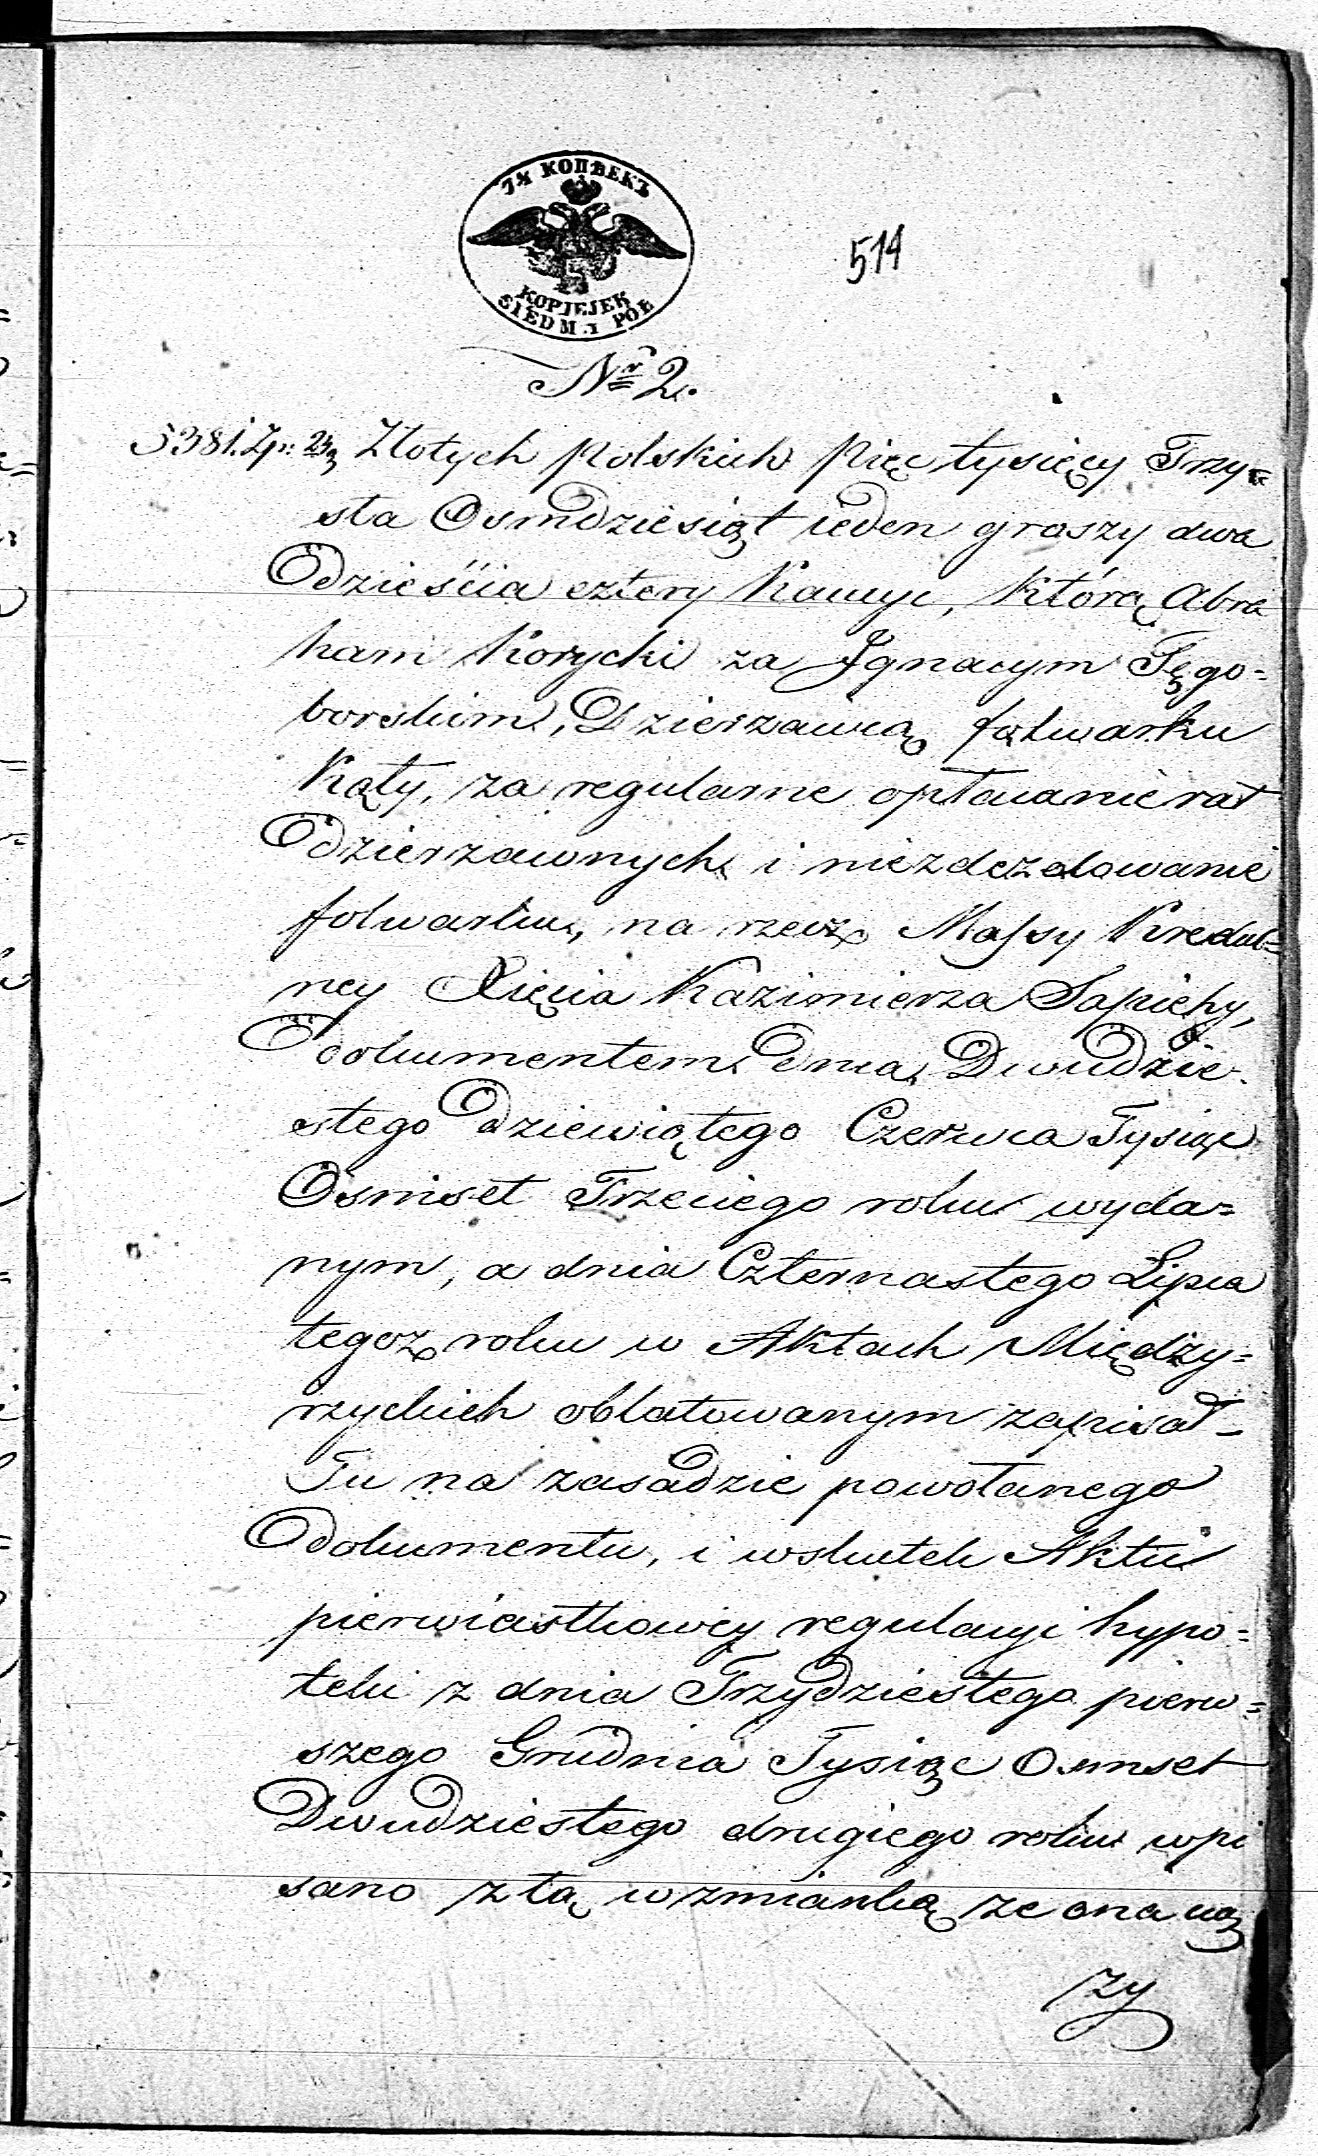 7½ КОПѢЕКЪ
KOPIEJEK
SIEDM i PÓŁ
514
Nr 2.
5381. Zp: 24 Złotych polskich Pięć tysięcy Trzy=
sta Osmdziesiąt ieden groszy dwa
dzieścia cztery Kaucyi, którą Abra
ham Korycki za Ignacym Tęgo=
borskim, Dzierzawcą folwarku
Kąty, za regularne opłacanie rat
dzierzawnych i niezdezolowanie
folwarku, na rzecz Massy Kredal=
ney Xięcia Kazimierza Sapiehy,
dokumentem dnia Dwudzie-
stego dziewiątego Czerwca Tysiąc
Osmset Trzeciego roku wyda=
nym, a dnia Czternastego Lipca
tegoz roku w Aktach Między=
rzyckich oblatowanym zapisał-
Tu na zasadzie powołanego
dokumentu, i wskutek Aktu
pierwiastkowey regulacyi hypo=
teki z dnia Trzydziestego pierw=
szego Grudnia Tysiąc Osmset
Dwudziestego drugiego roku wpi
sano z tą wzmianką ze ona cią
zy